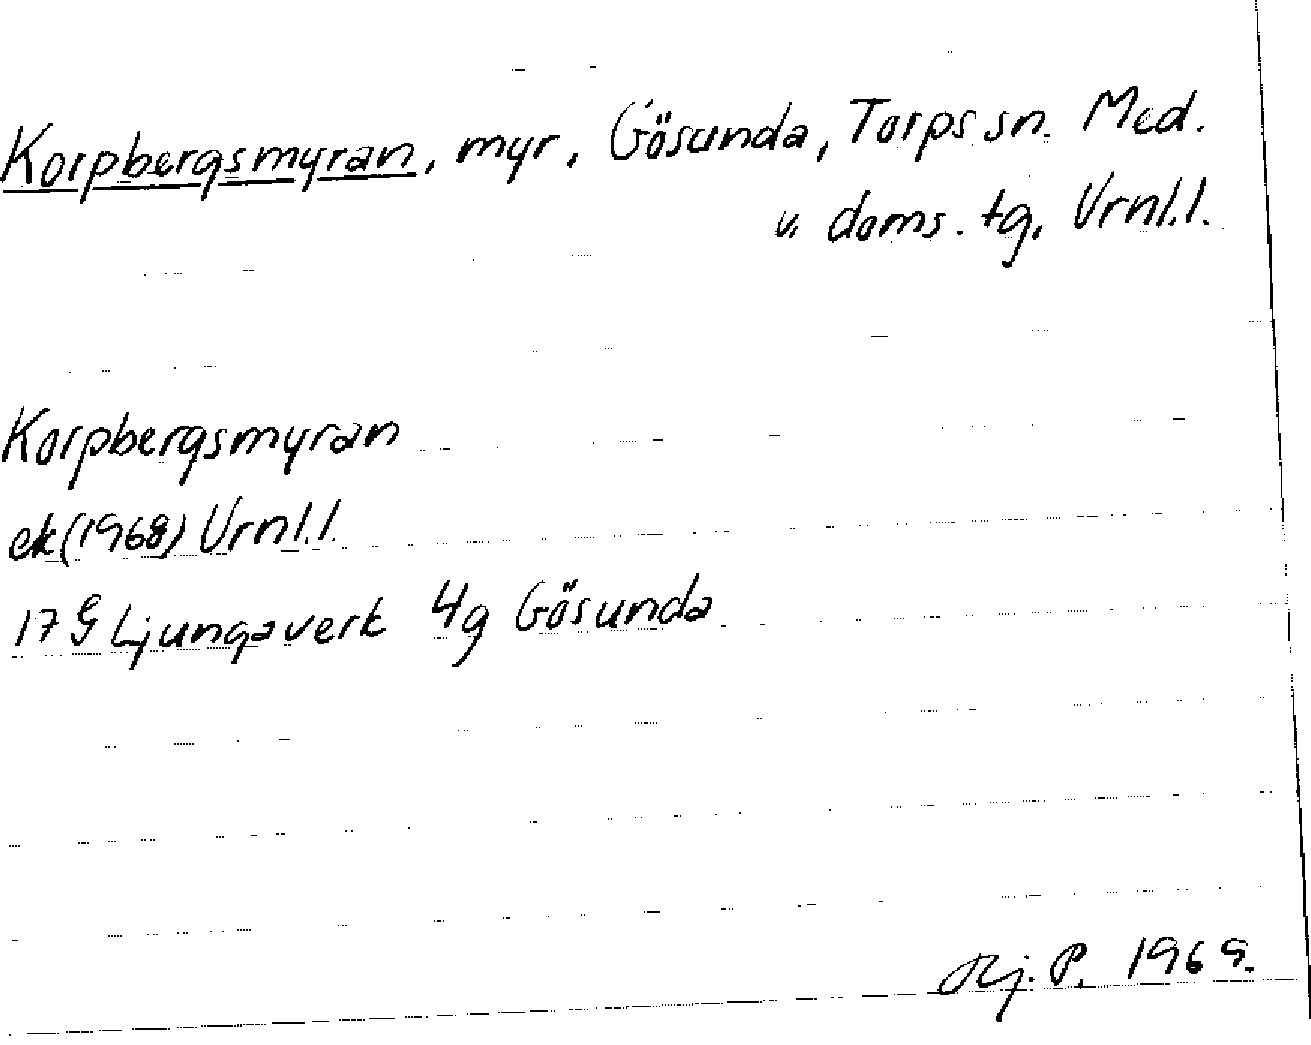 Korpbergsmyran, myr, Gösunda, Torps sn. Med.
v. doms. tg, Vrnl.l.
Korpbergsmyran
ek (1968) Vrnl.l.
17 G Ljungaverk 4g Gösunda
Kj. P. 1969.